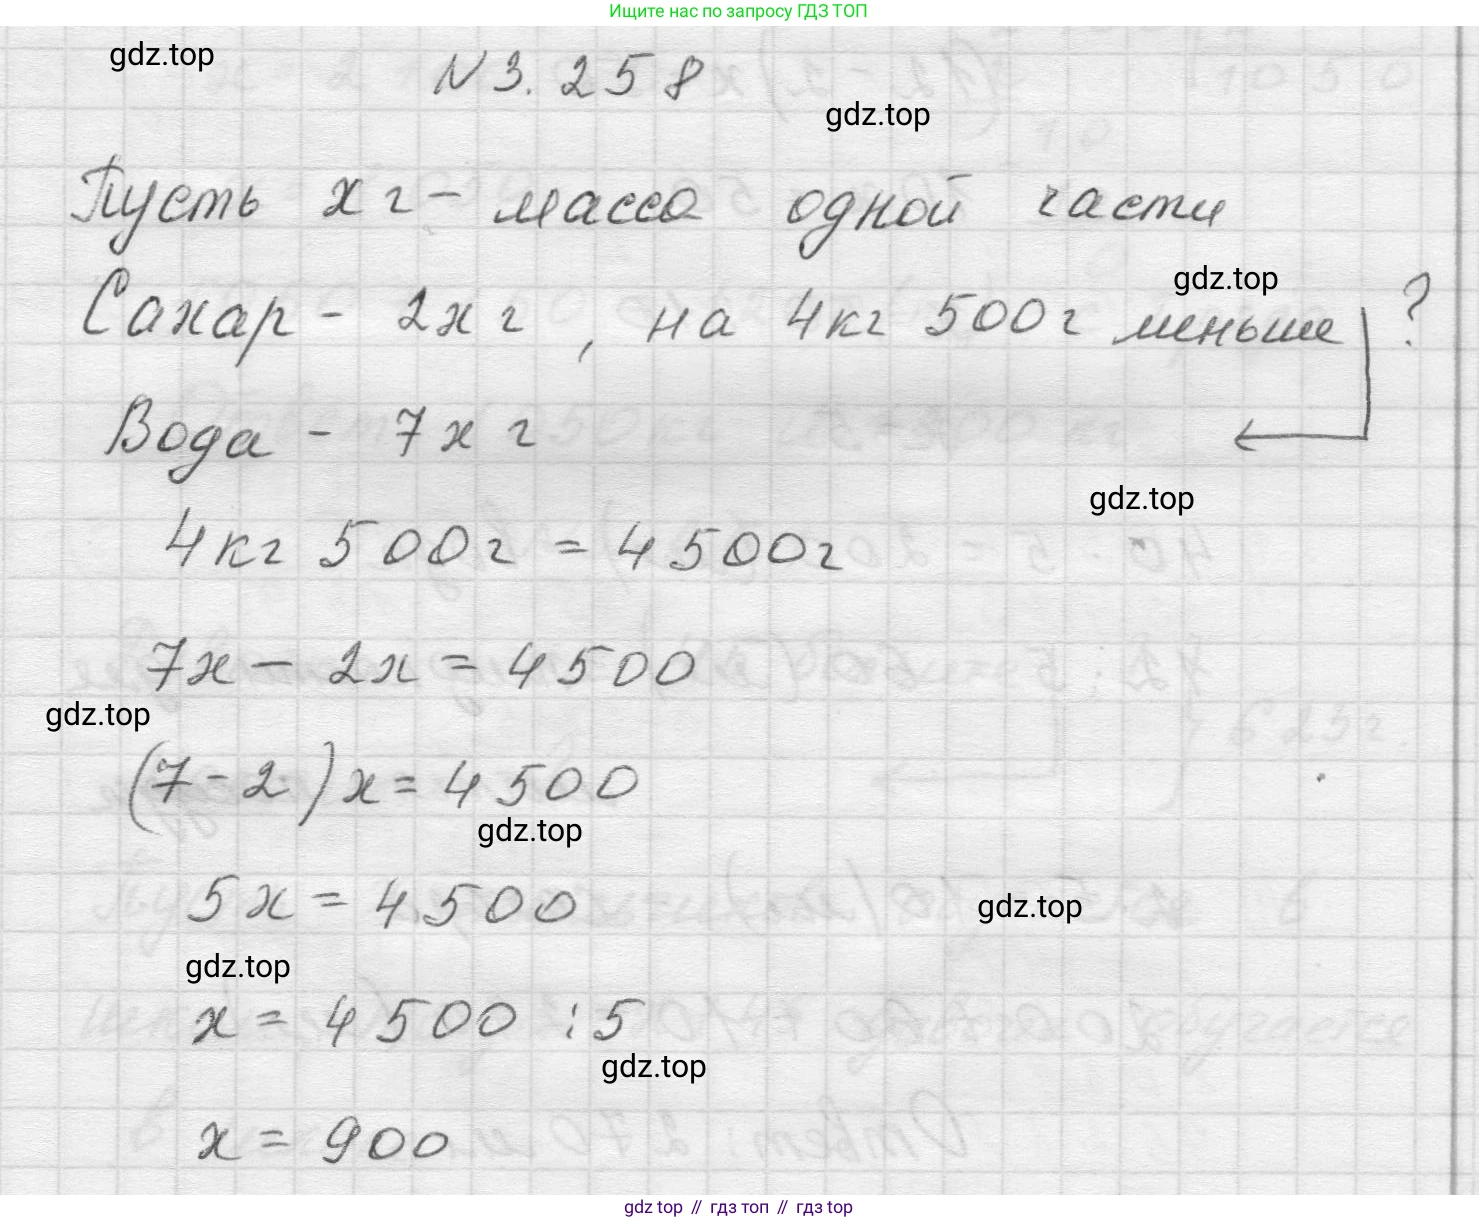 Ищите нас по запросу ГДЗ ТОП
gdz.top
N 3.258
gdz.top
Пусть x г – масса одной части
gdz.top
Сахар - 2x г, на 4кг 500г меньше ?
Вода - 7x г
gdz.top
4кг 500г = 4500г
7x – 2x = 4500
gdz.top
(7-2)x = 4500
gdz.top
5x = 4500
gdz.top
gdz.top
x = 4500 : 5
gdz.top
x = 900
gdz top // гдз топ // гдз top